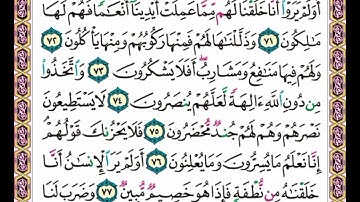 أَوَلَمْ يَرَوْا۟ أَنَّا خَلَقْنَا لَهُم مِّمَّا عَمِلَتْ أَيْدِينَآ أَنْعَٰمًا فَهُمْ لَهَا
مَٰلِكُونَ ٧١ وَذَلَّلْنَٰهَا لَهُمْ فَمِنْهَا رَكُوبُهُمْ وَمِنْهَا يَأْكُلُونَ ٧٢
وَلَهُمْ فِيهَا مَنَٰفِعُ وَمَشَارِبُ أَفَلَا يَشْكُرُونَ ٧٣ وَٱتَّخَذُوا۟
مِن دُونِ ٱللَّهِ ءَالِهَةً لَّعَلَّهُمْ يُنصَرُونَ ٧٤ لَا يَسْتَطِيعُونَ
نَصْرَهُمْ وَهُمْ لَهُمْ جُندٌ مُّحْضَرُونَ ٧٥ فَلَا يَحْزُنكَ قَوْلُهُمْ
إِنَّا نَعْلَمُ مَا يُسِرُّونَ وَمَا يُعْلِنُونَ ٧٦ أَوَلَمْ يَرَ ٱلْإِنسَٰنُ أَنَّا
خَلَقْنَٰهُ مِن نُّطْفَةٍ فَإِذَا هُوَ خَصِيمٌ مُّبِينٌ ٧٧ وَضَرَبَ لَنَا